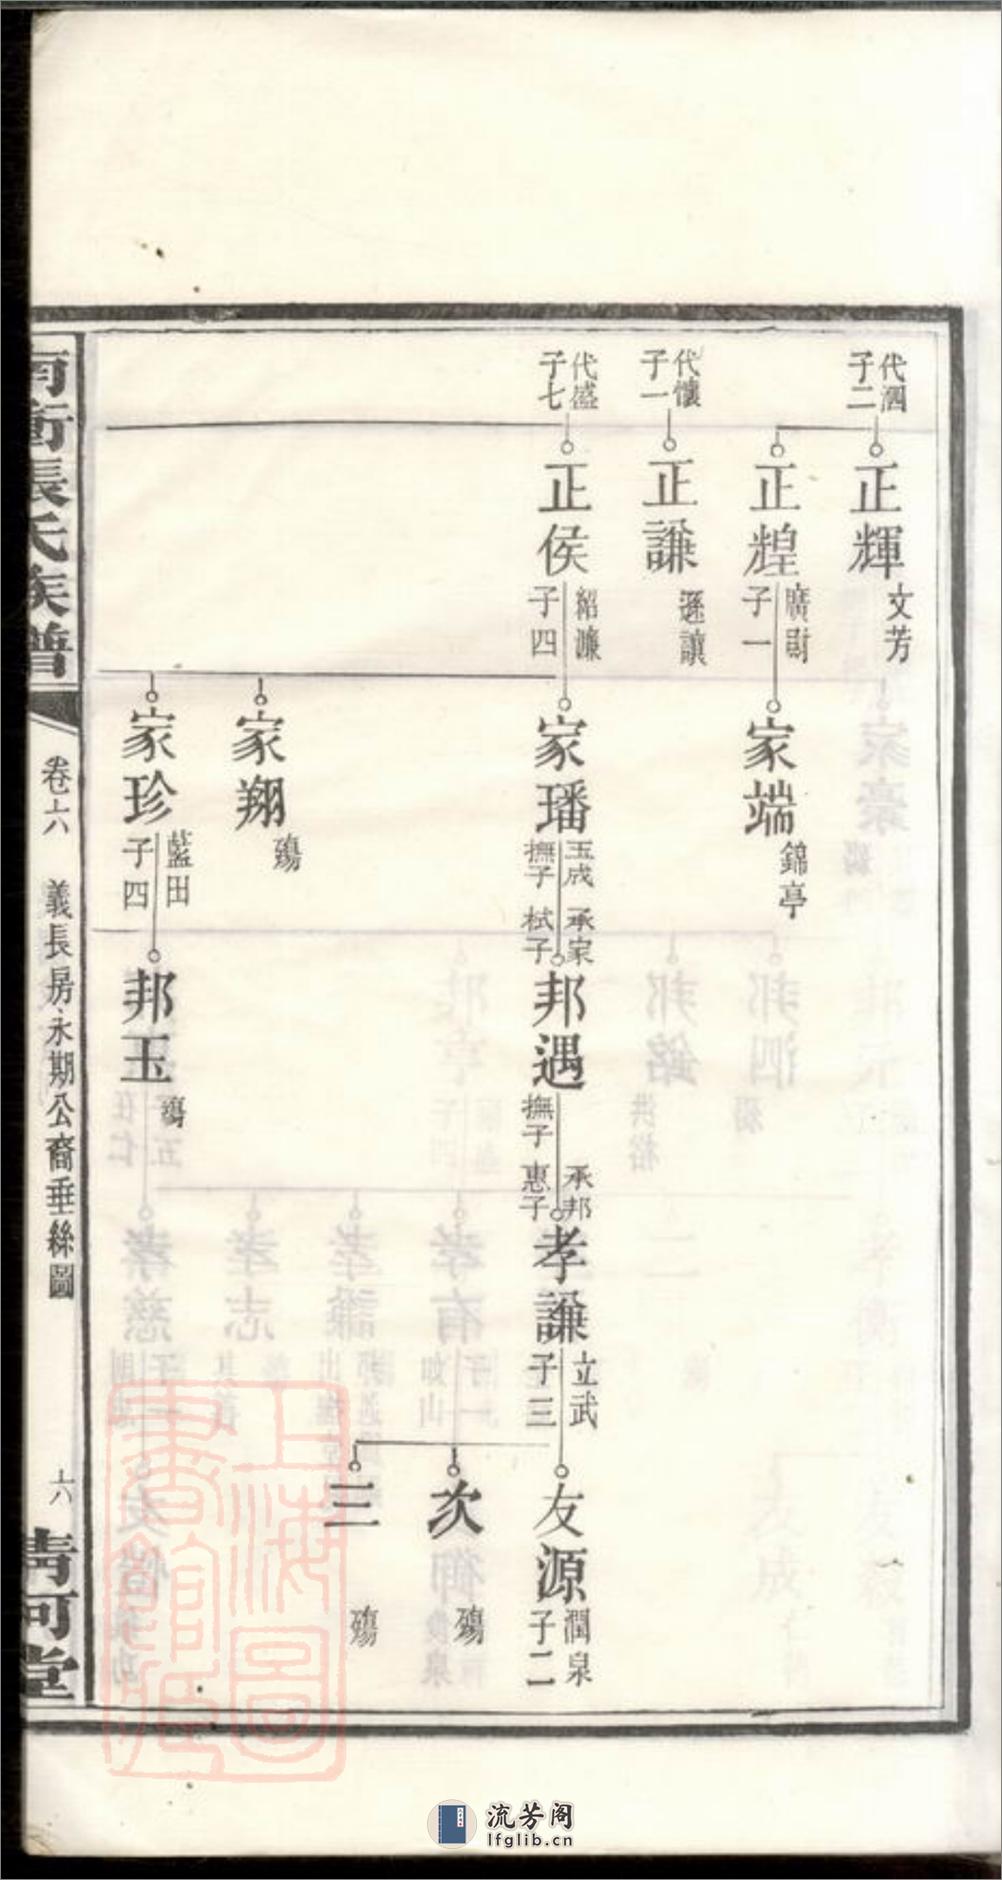 代泗
子二
正輝
文芳
正煌
廣尉
子一
家端
錦亭
代懷
子一
正謙
遜讓
代盛
子七
正侯
紹濂
子四
家璠
玉成 承家
撫子 栻子
邦遇
承邦
撫子 惠子
孝謙
立武
子三
友源
潤泉
子二
次
殤
三
殤
家翔
殤
家珍
藍田
子四
邦玉
殤
張氏族譜
卷六 義長房永期公裔垂絲圖
六
青河堂
上海圖書館藏
流芳阁
lfglib.cn